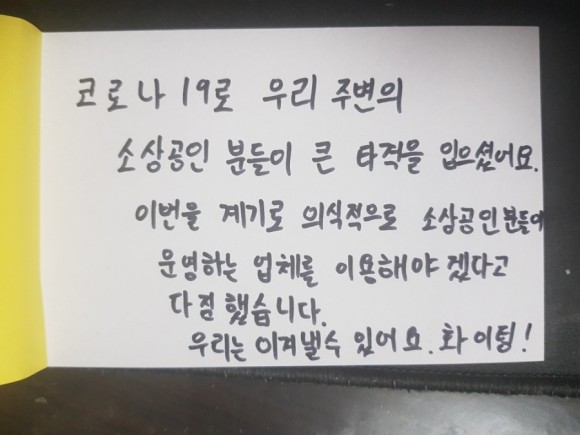 코로나 19로 우리 주변의
소상공인 분들이 큰 타격을 입으셨어요.
이번을 계기로 의식적으로 소상공인분들이
운영하는 업체를 이용해야 겠다고
다짐했습니다.
우리는 이겨낼수 있어요. 화이팅!